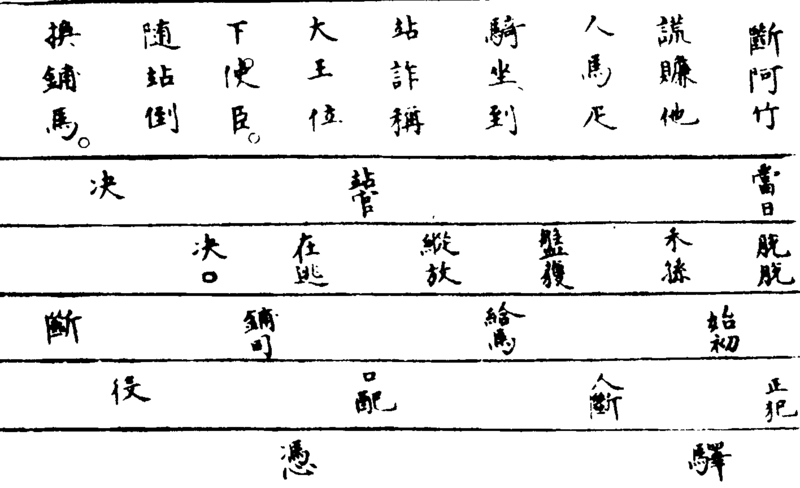 斷阿竹
謊賺他
人馬疋
騎坐到
站詐稱
大王位
下使臣。
随站倒
換鋪馬。
當日
站官
决
脱脱
禾孫
盤獲
縱放
在逃
决□
始初
給馬
鋪司
斷
正犯
人斷
□配
役
驛
憑